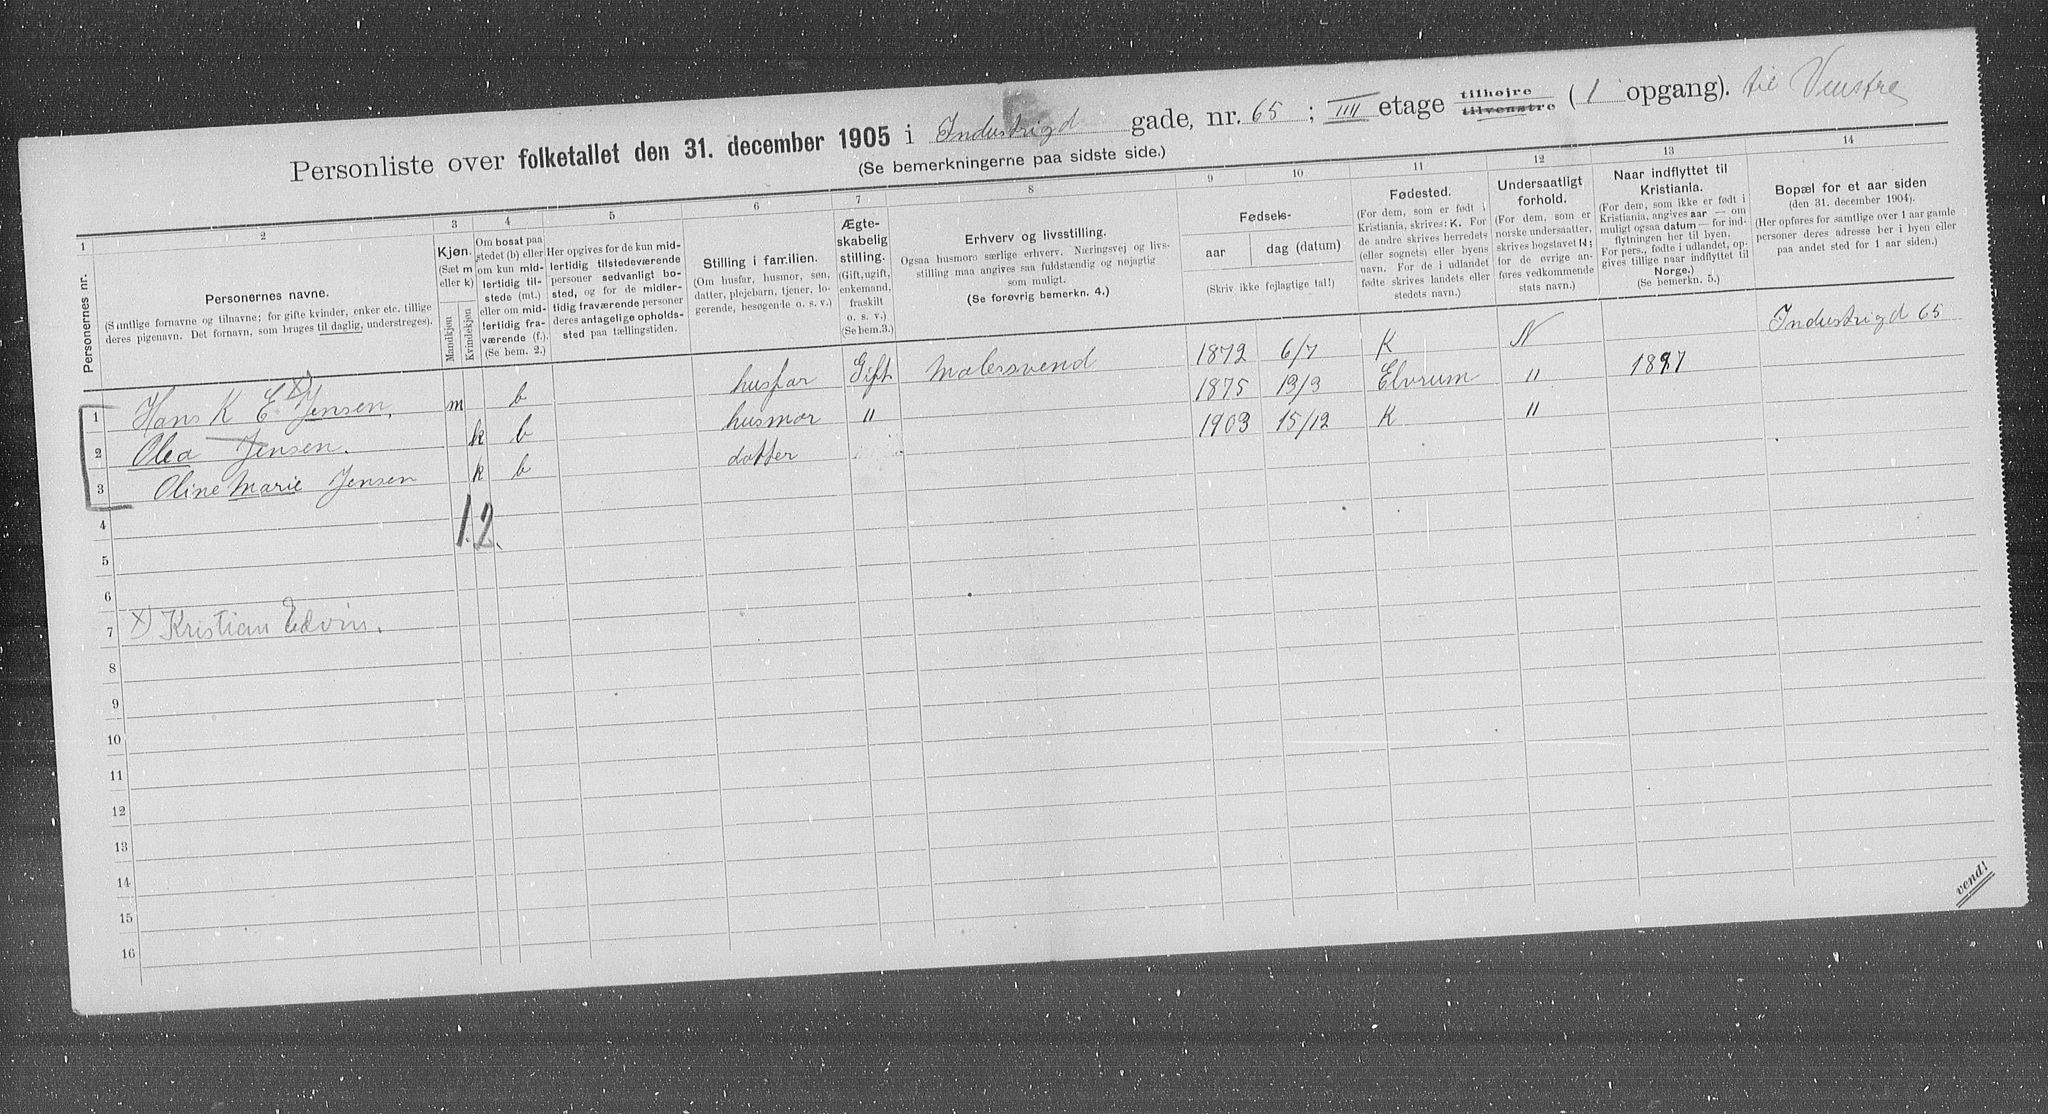 Personliste over folketallet den 31. december 1905 i Industrigd gade, nr. 65 ; IIII etage tilhøjre tilvenstre ( 1 opgang). til Venstre
(Se bemerkningerne paa sidste side.)
1 2 3 4 5 6 7 8 9 10 11 12 13 14
Personernes nr.
Personernes navne.
(Samtlige fornavne og tilnavne; for gifte kvinder, enker etc. tillige
deres pigenavn. Det fornavn, som bruges til daglig, understreges).
Kjøn.
(Sæt m
eller k)
Mandkjøn
Kvindekjøn
Om bosat paa
stedet (b) eller
om kun mid-
lertidig til-
stede (mt.)
eller om mid-
lertidig fra-
værende (f.)
(Se bem. 2.)
Her opgives for de kun mid-
lertidig tilstedeværende
personer sedvanligt bo-
sted, og for de midler-
tidig fraværende personer
deres antagelige opholds-
sted paa tællingstiden.
Stilling i familien.
(Om husfar, husmor, søn,
datter, plejebarn, tjener, lo-
gerende, besøgende o. s. v.)
Ægte-
skabelig
stilling.
(Gift, ugift,
enkemand,
fraskilt
o. s. v.)
(Se bem. 3.)
Erhverv og livsstilling.
Ogsaa husmors særlige erhverv. Næringsvej og livs-
stilling maa angives saa fuldstændig og nøjagtig
som muligt.
(Se forøvrig bemerkn. 4.)
Fødsels-
aar
dag (datum)
(Skriv ikke fejlagtige tal!)
Fødested.
(For dem, som er født i
Kristiania, skrives: K. For
de andre skrives herredets
(eller sognets) eller byens
navn. For de i udlandet
fødte skrives landets eller
stedets navn.)
Undersaatligt
forhold.
(For dem, som er
norske undersaatter,
skrives bogstavet N;
for de øvrige an-
føres vedkommende
stats navn.)
Naar indflyttet til
Kristiania.
(For dem, som ikke er født i
Kristiania, angives aar — om
muligt ogsaa datum — for ind-
flytningen her til byen.
For pers., fødte i udlandet, op-
gives tillige naar indflyttet til
Norge.)
(Se bemerkn. 5.)
Bopæl for et aar siden
(den 31. december 1904).
(Her opføres for samtlige over 1 aar gamle
personer deres adresse her i byen eller
paa andet sted for 1 aar siden.)
1 Hans K E x) Jensen, m b husfar Gift Malersvend 1872 6/7 K N Industrigd 65
2 Olea Jensen. k b husmor " 1875 13/3 Elvrum " 1897
3 Oline Marie Jensen k b datter 1903 15/12 K "
4 1. 2.
5
6
7 x) Kristian Edvin.
8
9
10
11
12
13
14
15
16
vend!